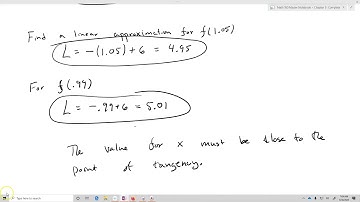 Find a linear approximation for f(1.05)
L = -(1.05) + 6 = 4.95
For f(.99)
L = -.99+6 = 5.01
The value for x must be close to the
point of tangency.
Type here to search